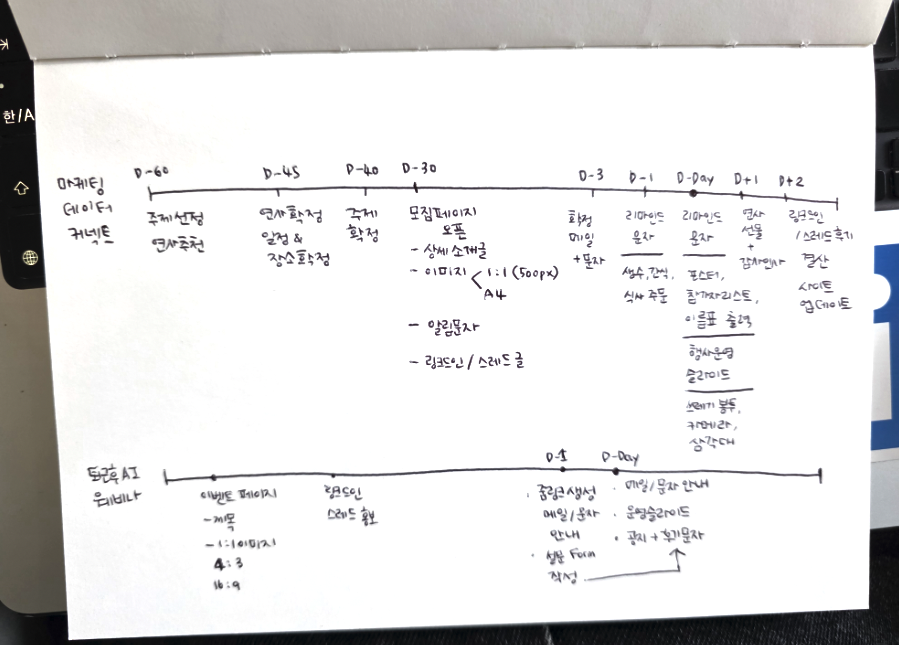 한/A
마케팅
데이터
커넥트
D-60
주제선정
연사추천
D-45
연사확정
일정 &
장소확정
D-40
주제
확정
D-30
모집페이지
오픈
- 상세소개글
- 이미지 < 1:1 (500px)
A4
- 알림문자
- 링크드인 / 스레드 글
D-3
확정
메일
+ 문자
D-1
리마인드
문자
생수, 간식,
식사 주문
D-Day
리마인드
문자
포스터,
참가자리스트,
이름표 출력
행사운영
슬라이드
쓰레기 봉투,
카메라,
삼각대
D+1
연사
선물
+
감사인사
D+2
링크드인
/스레드후기
결산
사이트
업데이트
퇴근후AI
웨비나
이벤트 페이지
- 제목
- 1:1이미지
4:3
16:9
링크드인
스레드 홍보
D-1
· 줌링크생성
메일/문자
안내
· 설문 Form
작성
D-Day
· 메일/문자 안내
· 운영슬라이드
· 공지 + 후기문자